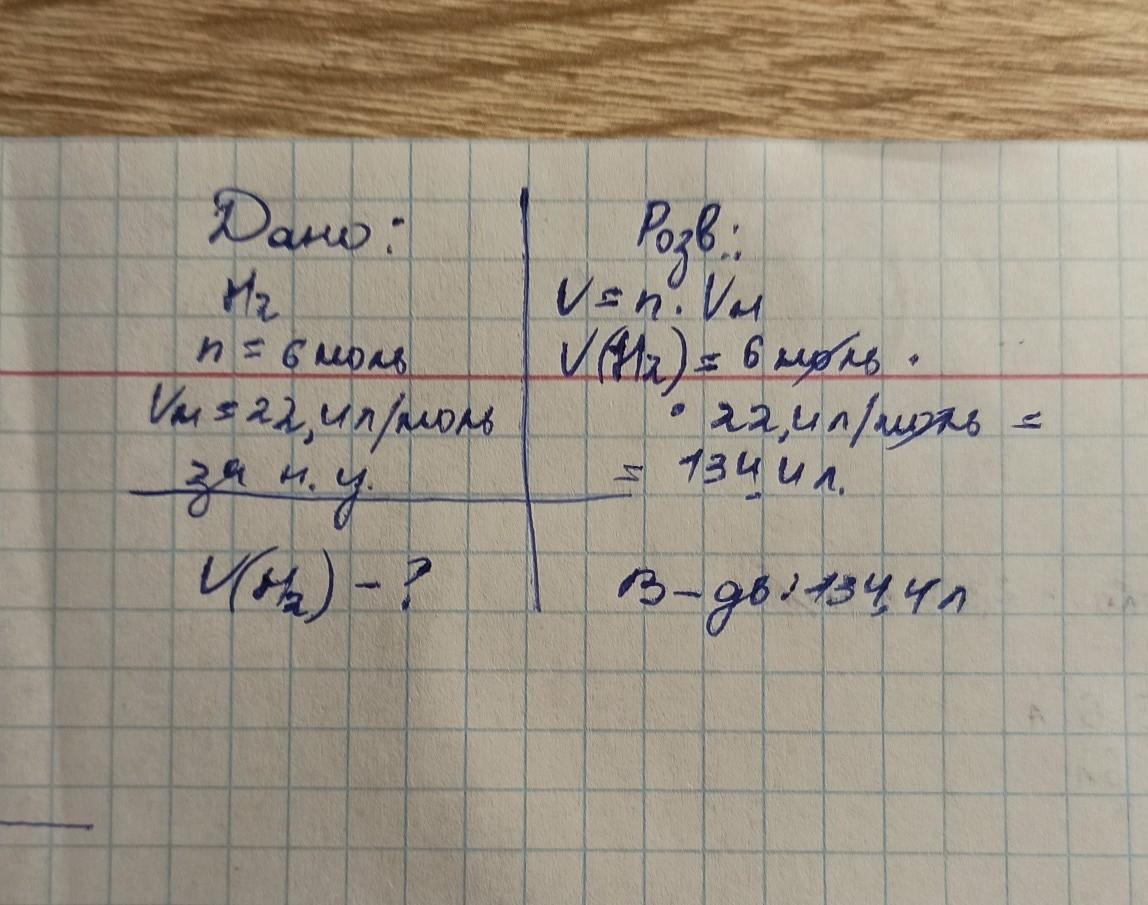 Дано:
H₂
n = 6 моль
Vм = 22,4 л/моль
за н. у.
V(H₂) - ?
Розв.:
V = n · Vм
V(H₂) = 6 моль ·
· 22,4 л/моль =
= 134,4 л.
В-дь: 134,4 л